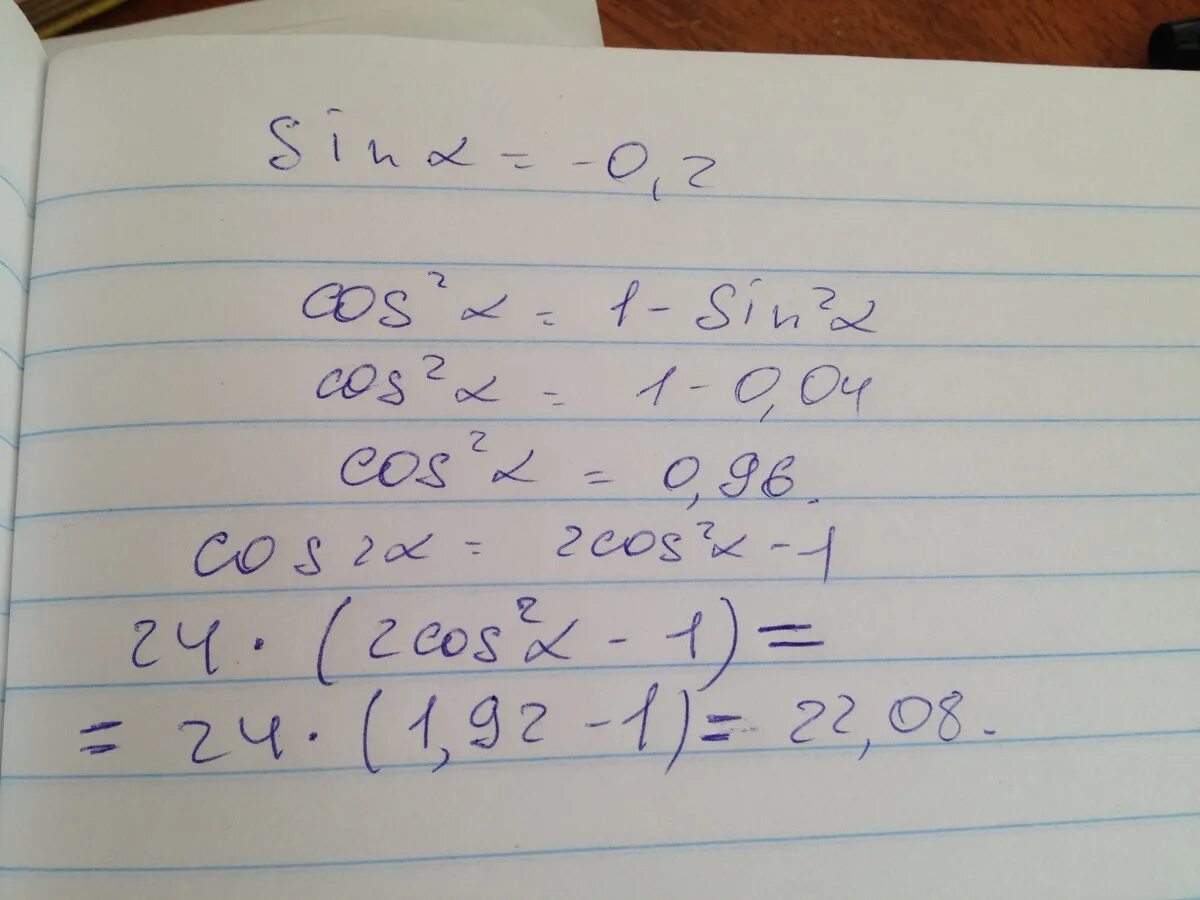 sin α = -0,2
cos² α = 1 - sin² α
cos² α = 1 - 0,04
cos² α = 0,96.
cos 2α = 2cos² α - 1
24 · (2cos² α - 1) =
= 24 · (1,92 - 1) = 22,08.